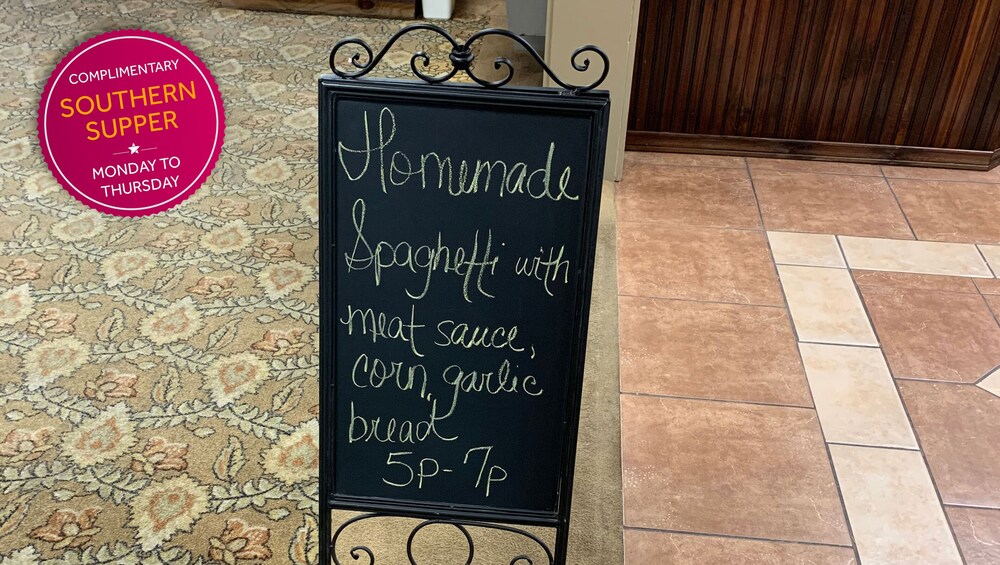 COMPLIMENTARY
SOUTHERN
SUPPER
MONDAY TO
THURSDAY
Homemade
Spaghetti with
meat sauce,
corn, garlic
bread
5p-7p